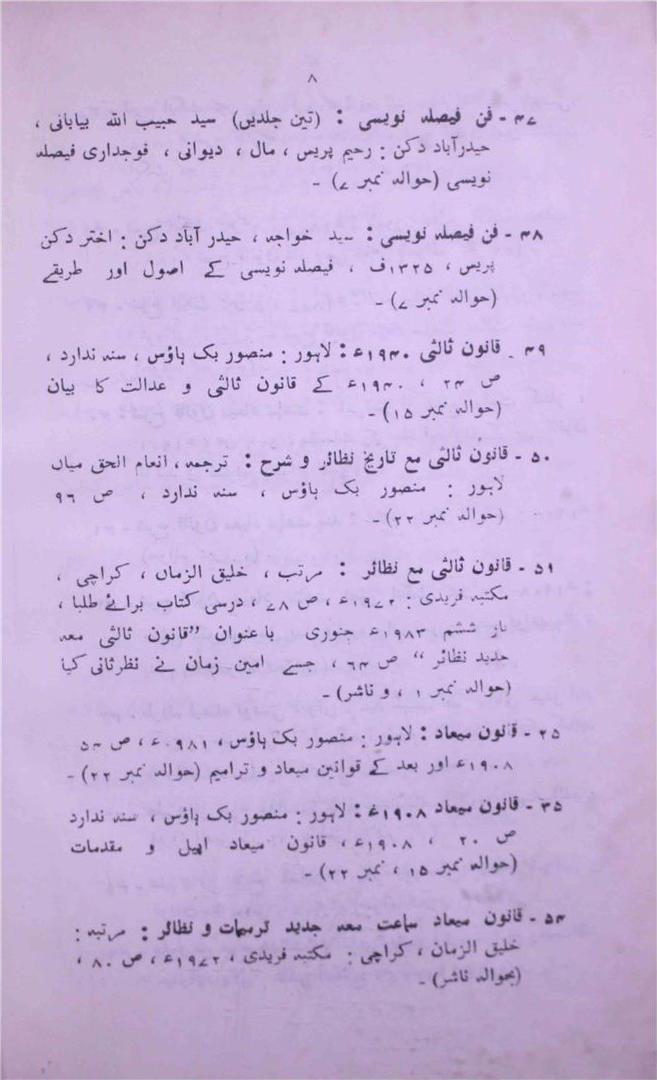 ۸
۴۷ - فن فیصلہ نویسی : (تین جلدیں) سید حبیب اللہ بیابانی ،
حیدرآباد دکن : رحیم پریس ، مال ، دیوانی ، فوجداری فیصلہ
نویسی (حوالہ نمبر ۷) -
۴۸ - فن فیصلہ نویسی : سید خواجہ ، حیدر آباد دکن : اختر دکن
پریس ، ۱۳۲۵ف ، فیصلہ نویسی کے اصول اور طریقے
(حوالہ نمبر ۷) -
۴۹ - قانون ثالثی ۱۹۴۰ء : لاہور : منصور بک ہاؤس ، سنہ ندارد ،
ص ۲۴ ، ۱۹۴۰ء کے قانون ثالثی و عدالت کا بیان
(حوالہ نمبر ۱۵) -
۵۰ - قانون ثالثی مع تاریخ نظائر و شرح : ترجمہ ، انعام الحق میاں
لاہور : منصور بک ہاؤس ، سنہ ندارد ، ص ۹۶
(حوالہ نمبر ۲۲) -
۵۱ - قانون ثالثی مع نظائر : مرتب ، خلیق الزماں ، کراچی ،
مکتبہ فریدی : ۱۹۷۲ء ، ص ۷۸ ، درسی کتاب برائے طلبا ،
بار ششم ۱۹۸۳ء جنوری باعنوان ”قانون ثالثی معہ
جدید نظائر “ ص ۶۴ ، جسے امین زمان نے نظرثانی کیا
(حوالہ نمبر ۱ ، و ناشر) -
۲۵ - قانون میعاد : لاہور : منصور بک ہاؤس ، ۰۹۸۱ء ، ص ۵۴
۱۹۰۸ء اور بعد کے قوانین میعاد و ترامیم (حوالہ نمبر ۲۲) -
۳۵ - قانون میعاد ۱۹۰۸ء : لاہور : منصور بک ہاؤس ، سنہ ندارد
ص ۲۰ ، ۱۹۰۸ء ، قانون میعاد اپیل و مقدمات
(حوالہ نمبر ۱۵ ، نمبر ۲۲) -
۵۴ - قانون میعاد سماعت معہ جدید ترمیمات و نظائر : مرتبہ :
خلیق الزمان ، کراچی : مکتبہ فریدی ، ۱۹۷۲ء ، ص ۸۰ ،
(بحوالہ ناشر) -